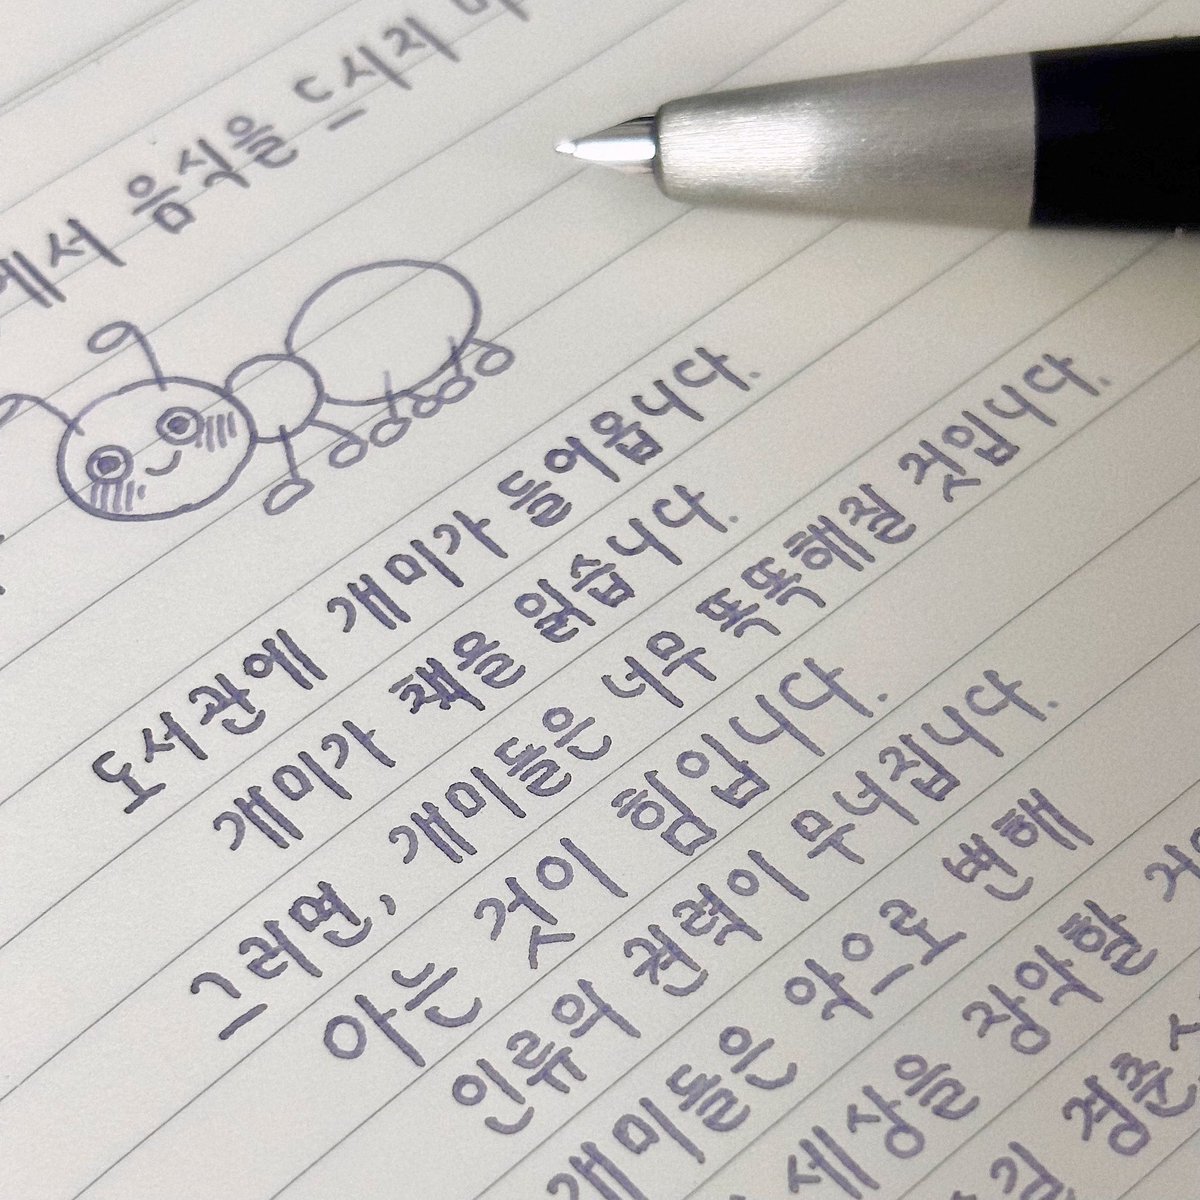 에서 음식을 드시지
도서관에 개미가 들어옵니다.
개미가 책을 읽습니다.
그러면, 개미들은 너무 똑똑해질 것입니다.
아는 것이 힘입니다.
인류의 권력이 무너집니다.
개미들은 악으로 변해
세상을 장악할